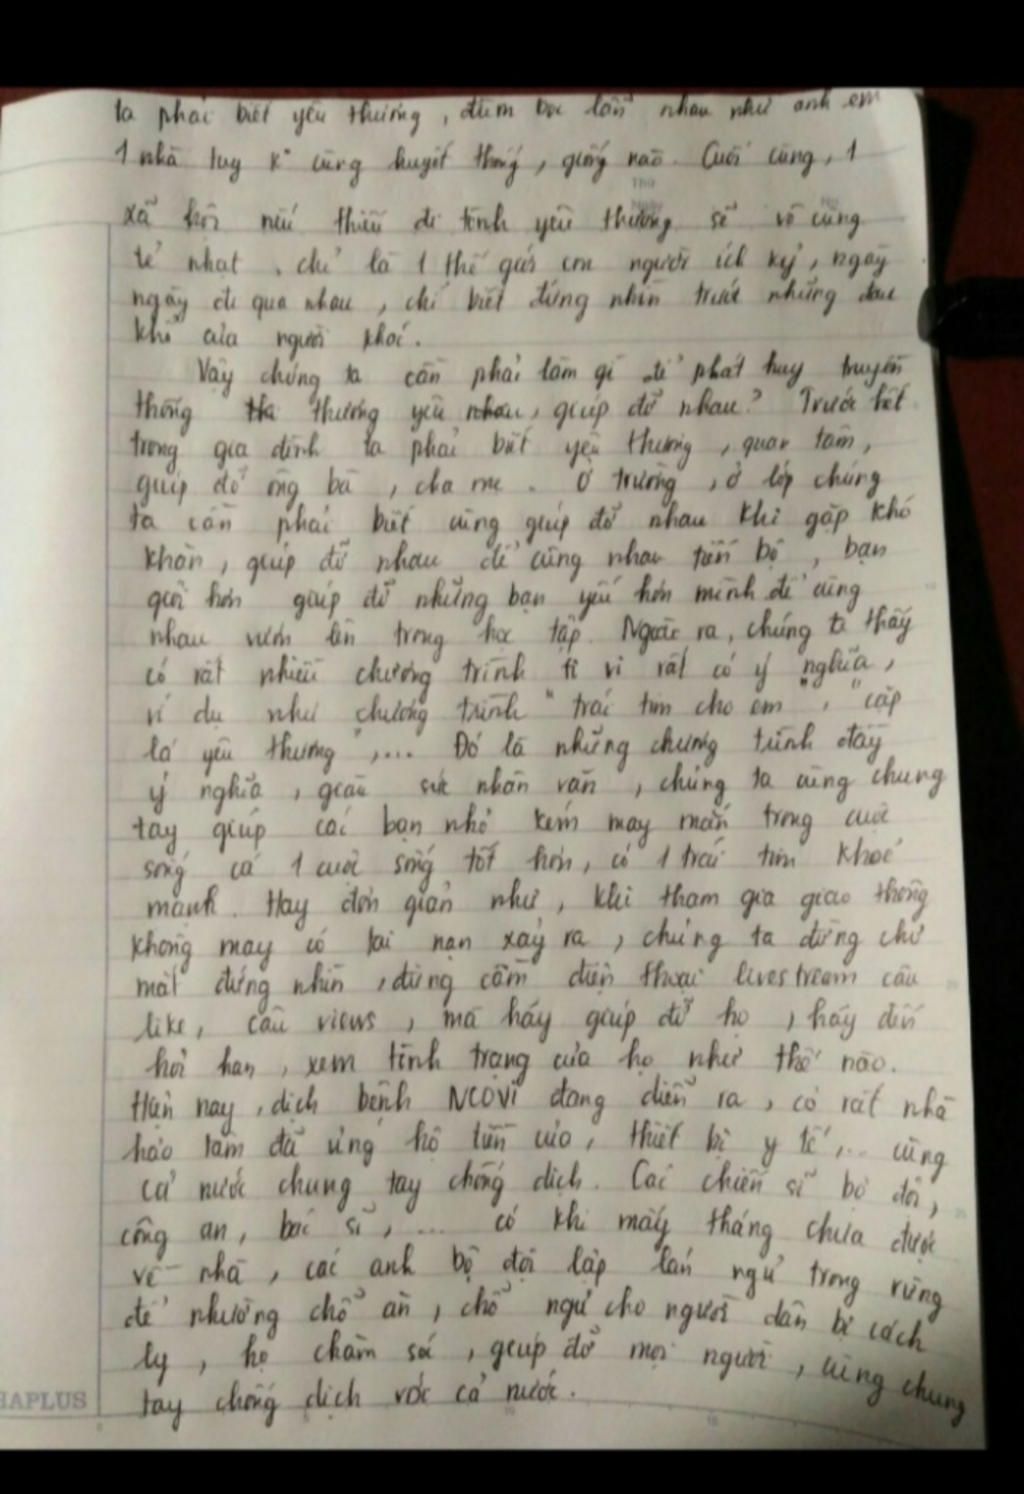 ta phải biết yêu thương, đùm bọc lẫn nhau như anh em
1 nhà tuy k° cùng huyết thống, giống nào. Cuối cùng, 1
xã hội nếu thiếu đi tình yêu thương sẽ vô cùng
tẻ nhạt, chỉ là 1 thế giới con người ích kỷ, ngày
ngày đi qua nhau, chỉ biết đứng nhìn trước những đau
khổ của người khác.
Vậy chúng ta cần phải làm gì để phát huy truyền
thống thương yêu nhau, giúp đỡ nhau? Trước hết
trong gia đình ta phải biết yêu thương, quan tâm,
giúp đỡ ông bà, cha mẹ. Ở trường, ở lớp chúng
ta cần phải biết cùng giúp đỡ nhau khi gặp khó
khăn, giúp đỡ nhau để cùng nhau tiến bộ, bạn
giỏi hơn giúp đỡ những bạn yếu hơn mình để cùng
nhau vươn lên trong học tập. Ngoài ra, chúng ta thấy
có rất nhiều chương trình ti vi rất có ý nghĩa,
ví dụ như chương trình "trái tim cho em", "cặp
lá yêu thương",... Đó là những chương trình đầy
ý nghĩa, giàu sức nhân văn, chúng ta cùng chung
tay giúp các bạn nhỏ kém may mắn trong cuộc
sống có 1 cuộc sống tốt hơn, có 1 trái tim khoẻ
mạnh. Hay đơn giản như, khi tham gia giao thông
không may có tai nạn xảy ra, chúng ta đừng chỉ
mặt đứng nhìn, đừng cầm điện thoại livestream câu
like, câu views, mà hãy giúp đỡ họ, hãy đến
hỏi han, xem tình trạng của họ như thế nào.
Hiện nay, dịch bệnh NCOVI đang diễn ra, có rất nhà
hảo tâm đã ủng hộ tiền của, thiết bị y tế,... cùng
cả nước chung tay chống dịch. Các chiến sĩ bộ đội,
công an, bác sĩ,.... có khi mấy tháng chưa được
về nhà, các anh bộ đội lập lán ngủ trong rừng
để nhường chỗ ăn, chỗ ngủ cho người dân bị cách
ly, họ chăm sóc, giúp đỡ mọi người, cùng chung
tay chống dịch với cả nước.
HAPLUS